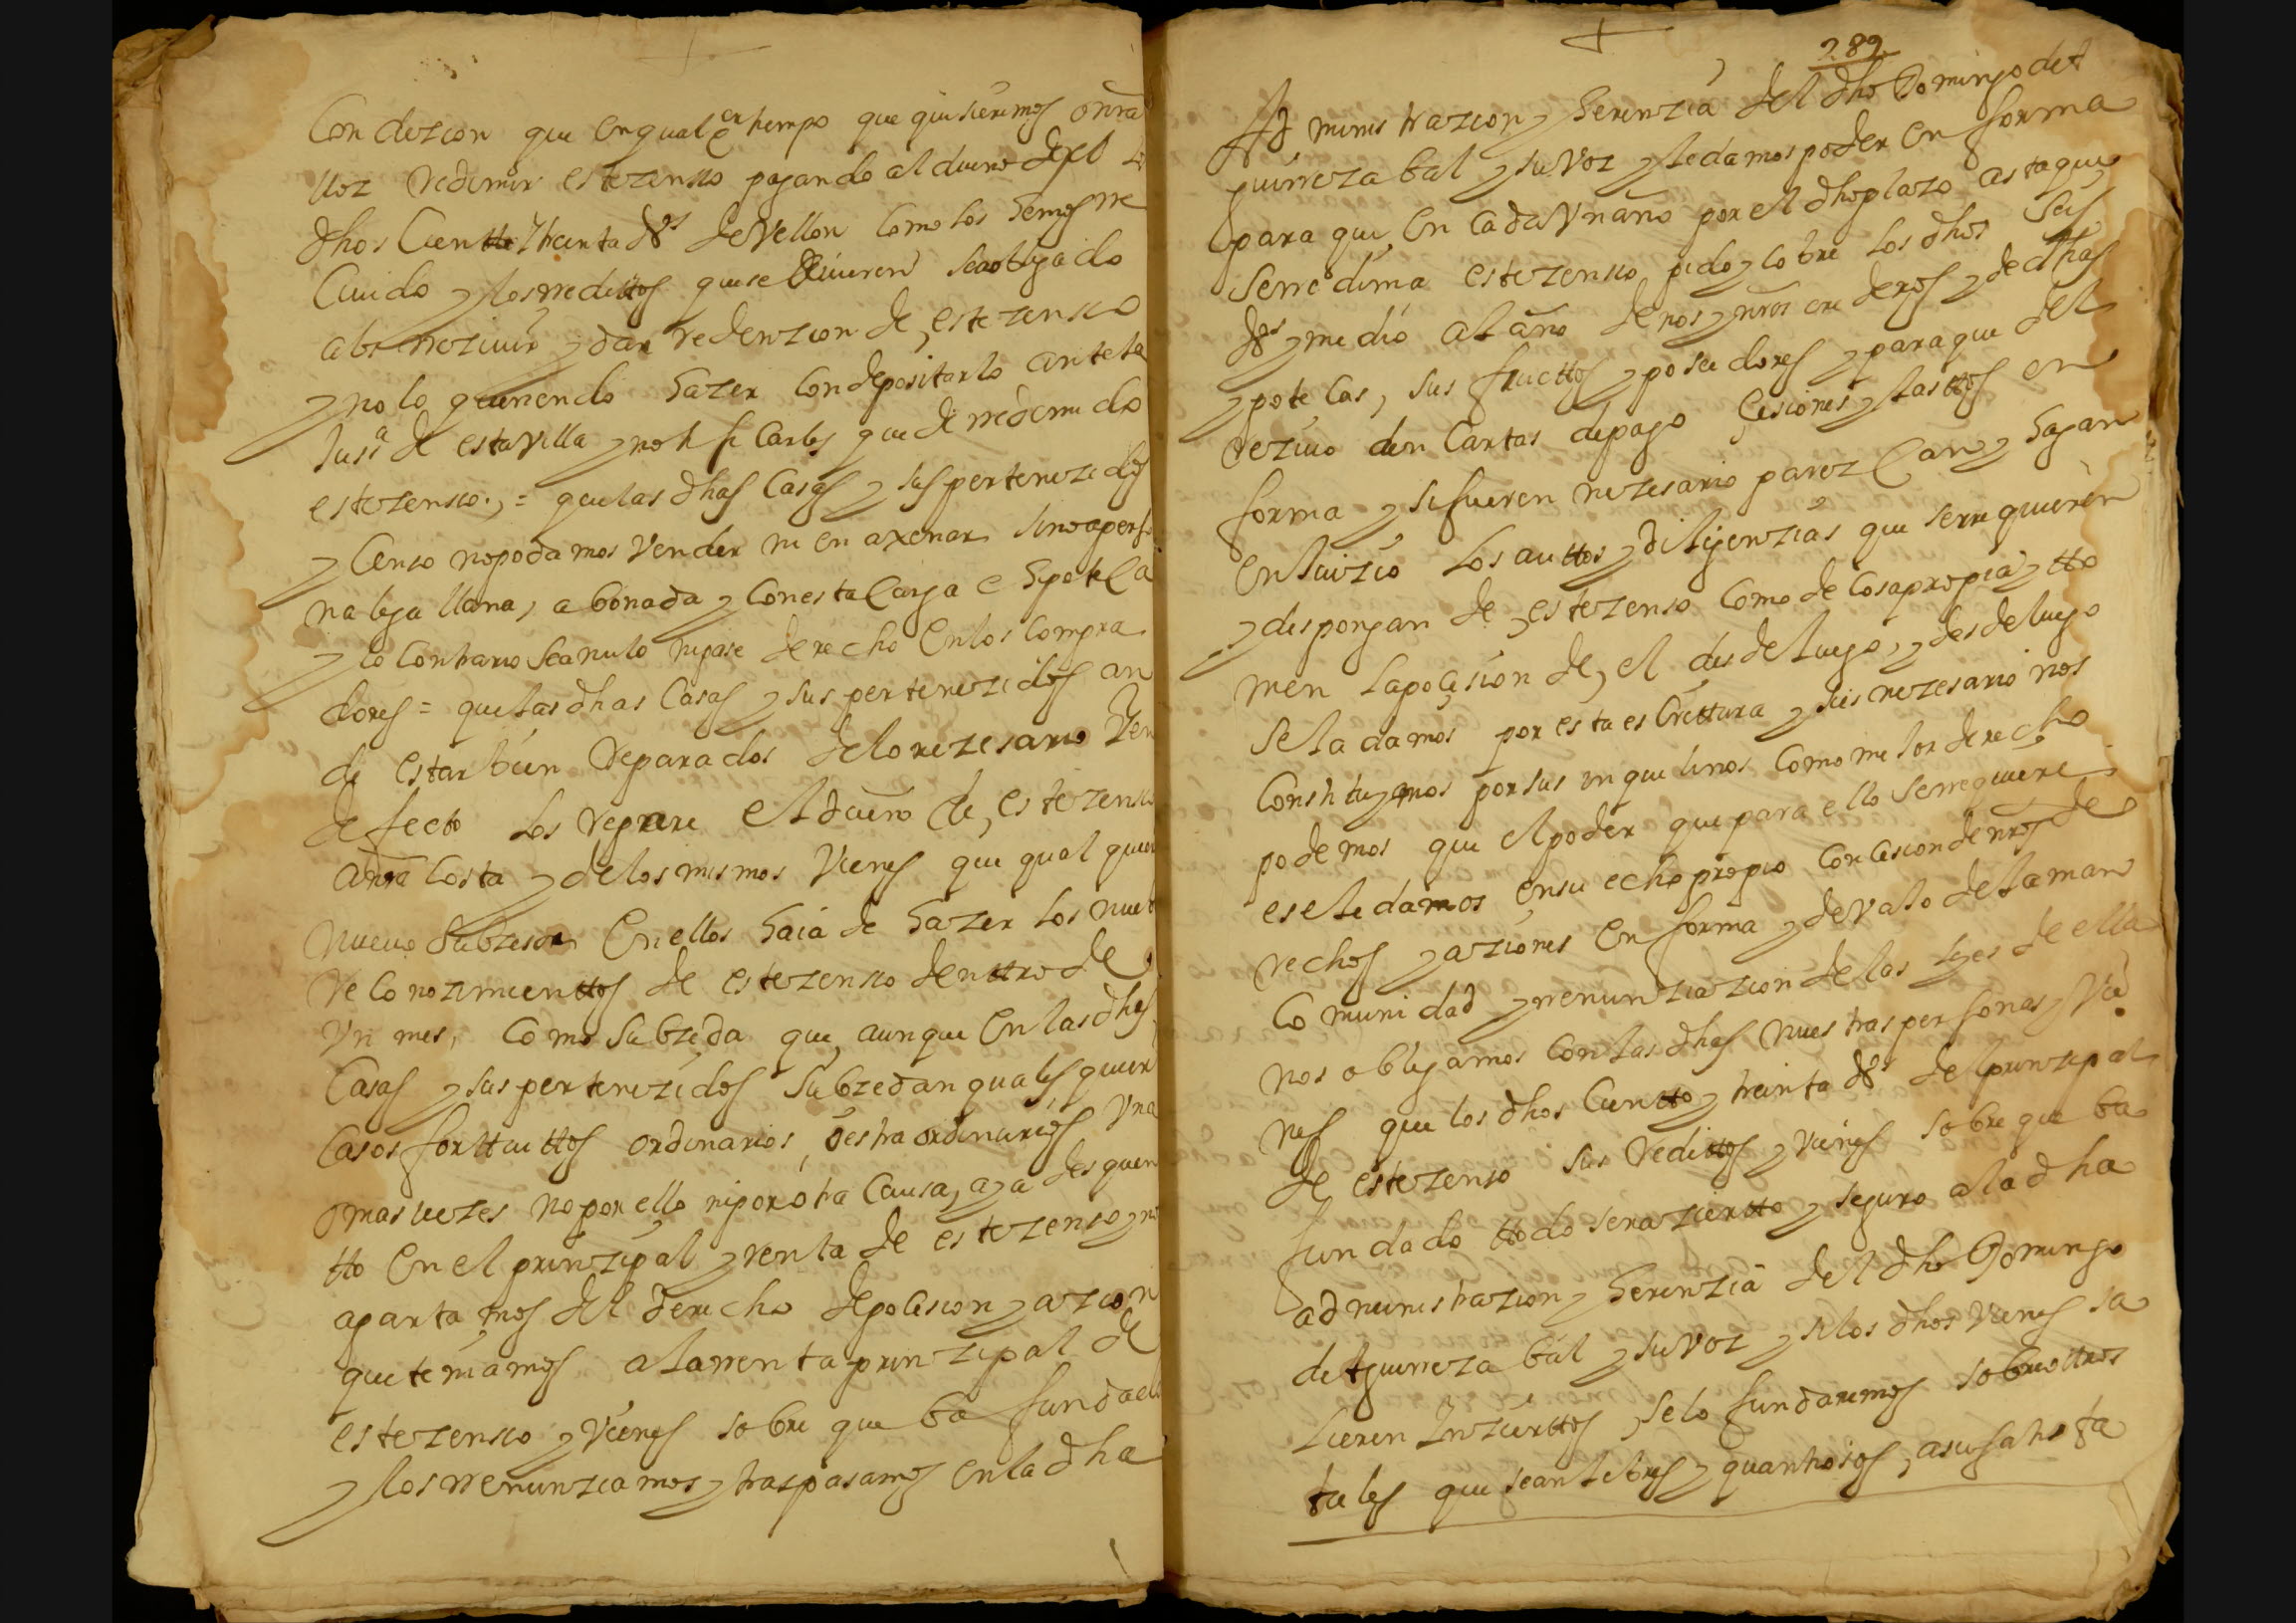 Condizion que enqualqer tiempo que quisieremos o nra
voz redimir estezensso pagando al dueno del los
dhos Cientto Ytreinta ds de Vellon como los hemos rre
Cuido y los rredittos que se deuieren sea obligado
a los rreziuir y dar redenzion de estezensso
y no lo queriendo hazer con depositarlo ante la
Jussa de esta Villa y notificarles quede rredemido
estezensso., = que las dhas Casas y sus pertenezidos
y Censo nopodamos Vender ni en axenar sino apersso
na lega llana, abonada y Con esta Carga e hipoteca
y lo Contrario sea nulo nipase derecho en los compra
dores = que las dhas Casas y sus pertenezidos an
de estar bien Reparados de lo nezesario Yen
defecto los repare el dueno de estezensso
a nra Costa y de los mismos Vienes que qual quier
nueuo Subzesor en ellos haia de hazer los nueb
reconozimienttos de estezensso denttro de
Vn mes, como Subzeda que, aunque en las dhas
Casas y sus pertenezidos Subzedan quales quier
Casos forttuittos ordinarios, o estraordinarios Vna
o mas vezes no por ello nipor otra Causa, aya desquen
tto en el prinzipal y renta de estezenso y nos
apartamos del derecho deposesion y azion
que teniamos a la rrenta prinzipal de
estezensso y Vienes sobre que ba fundado
y los rrenunziamos y traspasamos en la dha
289
Administrazion y herenzia del dho Domingo de A
guirrezabal y su Voz y le damos poder en forma
para que en cada Vn año por el dho plazo asta que
se rredima estezensso pida y cobre los dhos seis
ds y medio al año de nos y nros erederos y de dhas
ypotecas, sus fructtos y poseedores y para que del
reziuo den Cartas de pago Cesiones y lasttos en
forma y si fueren nezesario parezcan y hagan
en Juizio los auttos y diligenzias que se rrequieren
y dispongan de estezenso como de cosa propia y tto
men la posesion de, el desde luego, y desde luego
se la damos por esta escrittura y si es nezesario nos
Constituyamos por sus inquilinos como mejor derecho
podemos que el poder que para ello se rrequiere
ese le damos en su echo propio con Cesion de nros de
rechos y aziones en forma y de Vajo de la man
comunidad y rrenunziazion de las leyes de ella
nos obligamos con las dhas nuestras personas y Vie
nes que los dhos Cientto y treinta ds del prinzipal
de estezenso sus redittos y vienes sobre que ba
fundado ttodo sera zientto y seguro a la dha
administrazion y herenzia del dho Domingo
de Aguirrezabal y su Voz y si los dhos Vienes sa
lieren Inzierttos, se lo fundaremos sobre ottros
tales que sean libres y quantiosos, a su satisfa